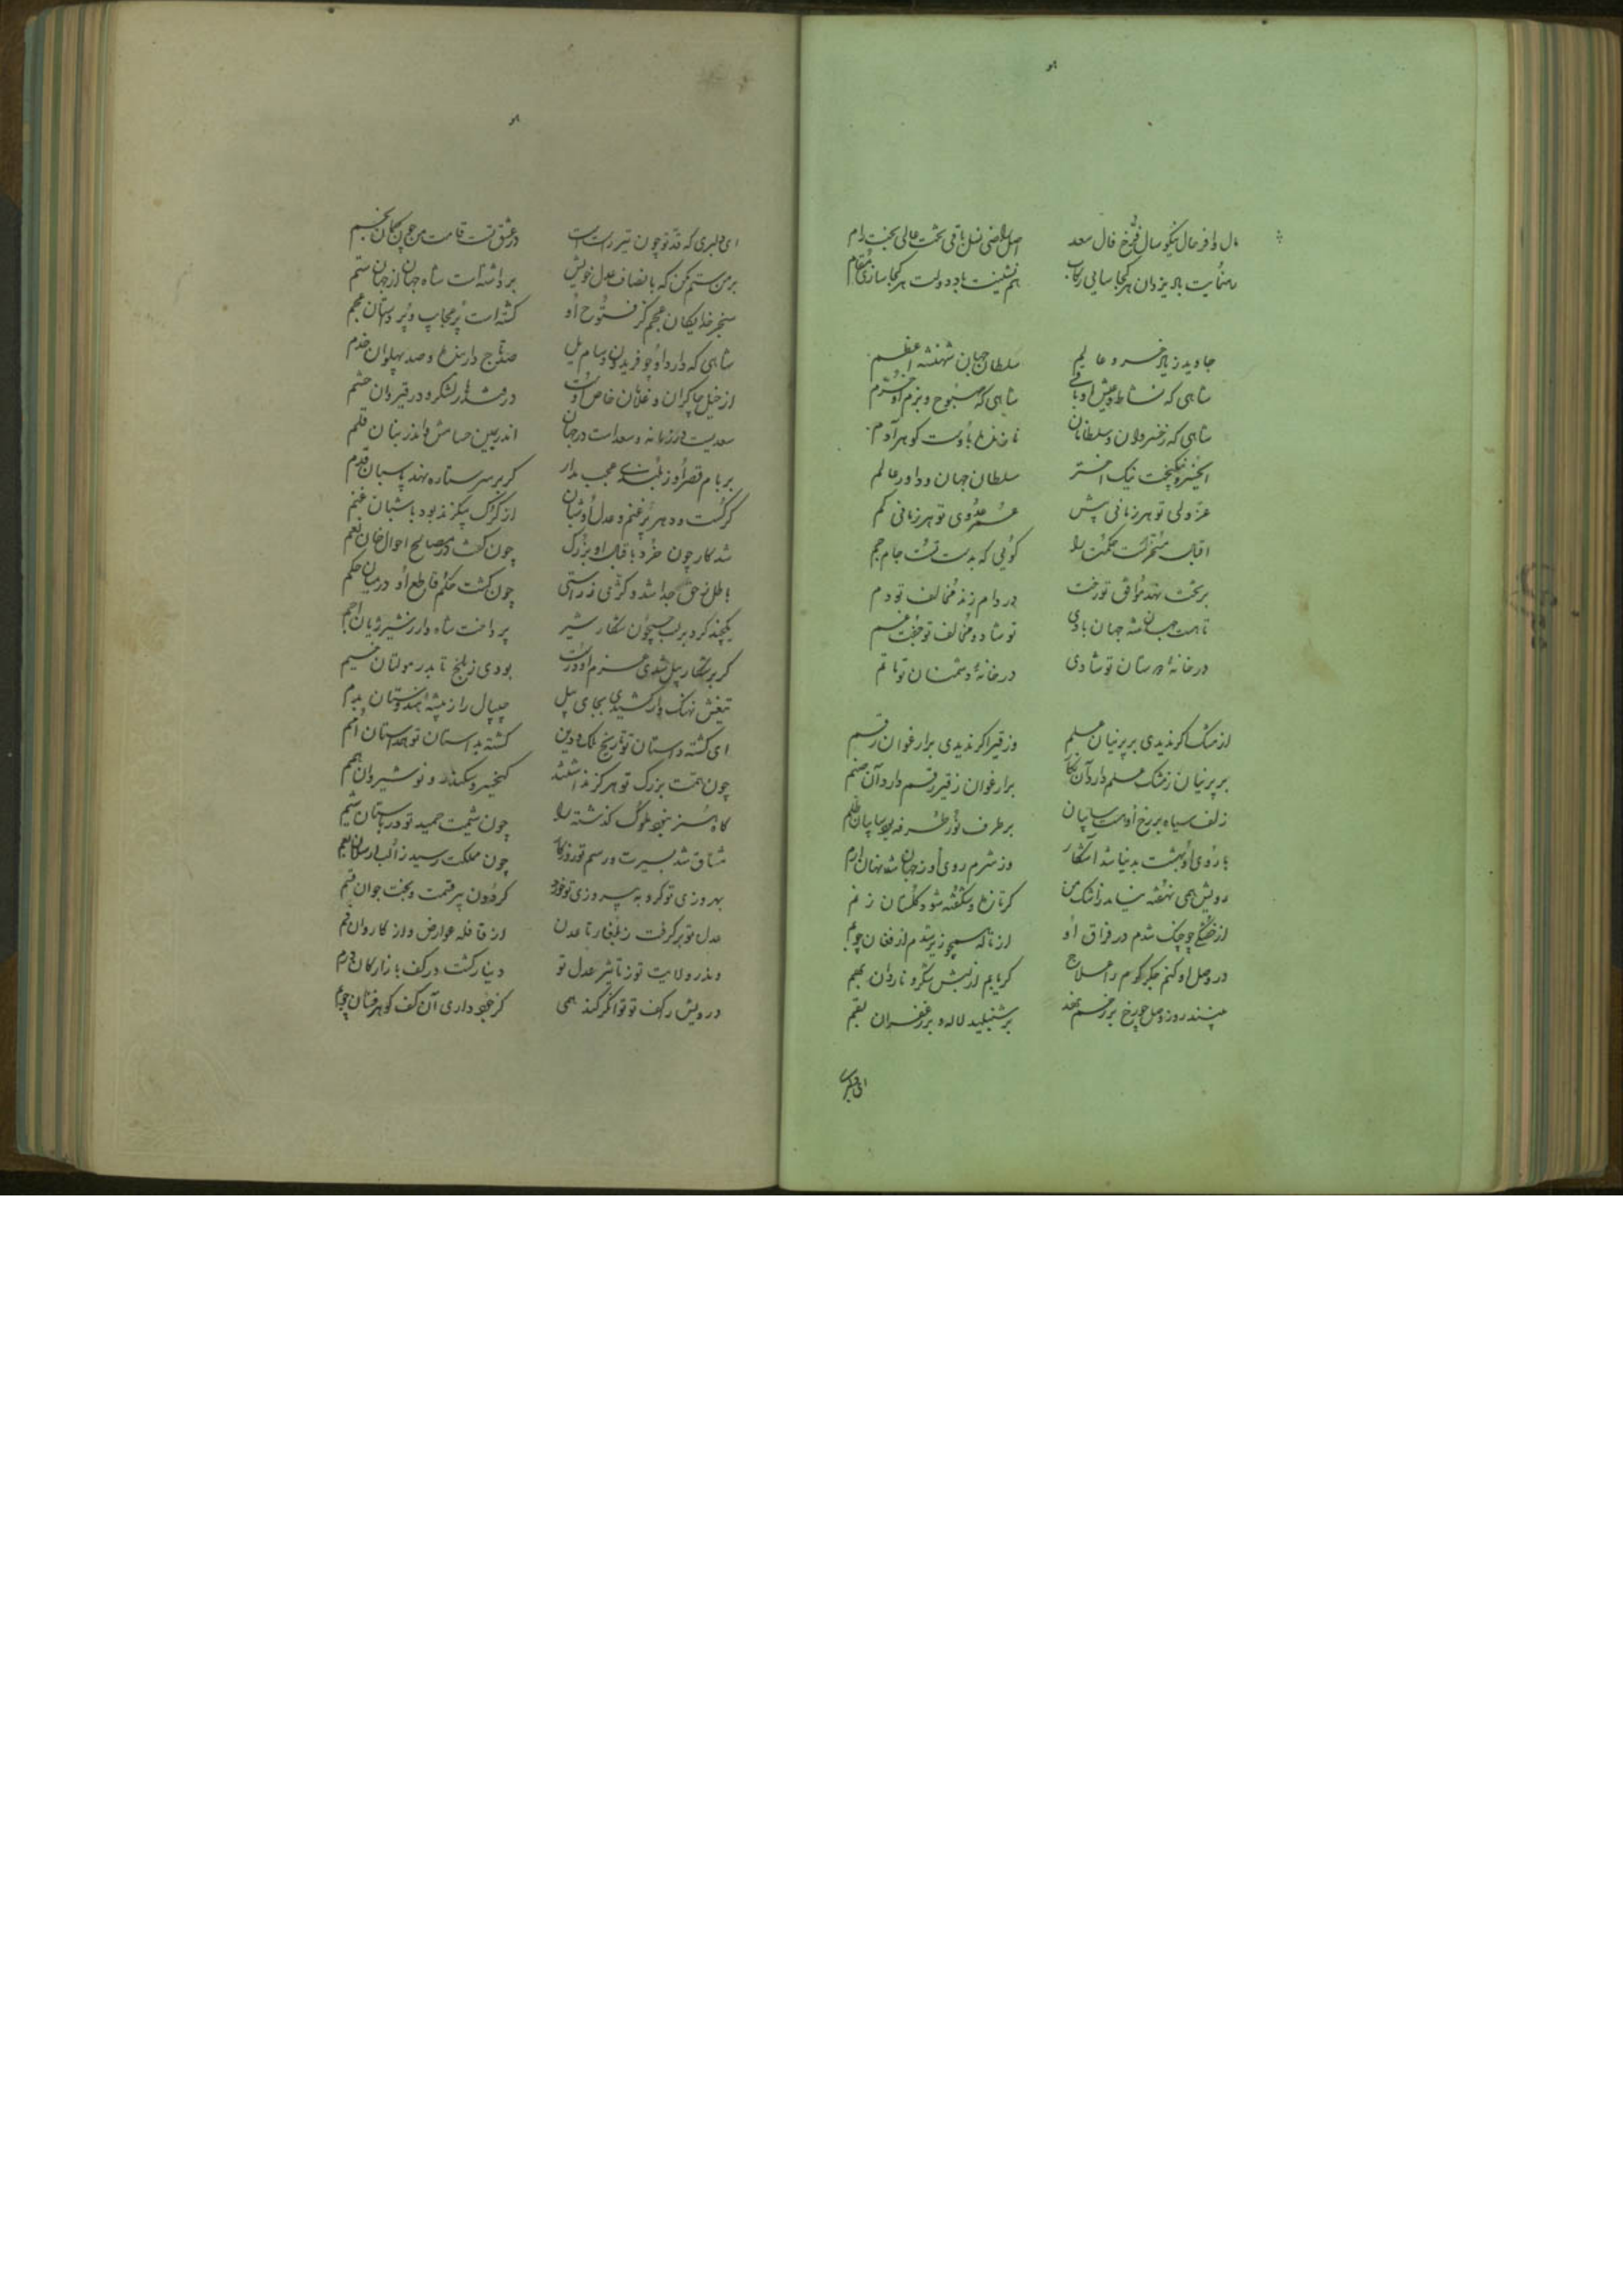 مال وافر حال نیکو سال فرخ فال سعد اصل راضی نسل باقی تخت عالی بخت رام
رهنمایت باد یزدان هر کجا سایی رکاب هم نشینت باد دولت هر کجا سازی مقام
جاوید زیاد خسرو عالم سلطان جهان شهنشه اعظم
شاهی که نشاط و عیش او باقی شاهی که صبوح و بزم او خرم
شاهی که ز خسروان و سلطانان نازنده باوست گوهر آدم
ای خسرو نیکبخت نیک اختر سلطان جهان و داور عالم
عز ولی تو هر زمانی بیش عمر عدوی تو هر زمانی کم
اقبال مسخرست حکمت را گوئی که بدست تست جام جم
بر تخت نهد موافق تو رخت در دام زند مخالف تو دم
تا هست جهان شه جهان بادی تو شاد و مخالف تو جفت غم
در خانهٔ دوستان تو شادی در خانهٔ دشمنان تو ماتم
از مشک اگر ندیدی بر پرنیان علم وز قیر اگر ندیدی بر ارغوان رقم
بر پرنیان ز مشک علم دارد آن نگار بر ارغوان ز قیر رقم دارد آن صنم
زلف سیاه بر رخ او هست سایبان بر طرف نور طرفه بود سایبان ظلم
با روی او بهشت بدنیا شد آشکار وز شرم روی او ز جهان شد نهان ارم
رویش همی نهفته نماند ز اشک من گر تازه و شکفته شود گلستان ز نم
از خستگی چو چنگ شدم در فراق او از ناله همچو زیر شدم از فغان چو بم
در وصل او کنم جگر گرم را علاج گر یابم از لبش شکر و ناردان بهم
بینند روز وصل چو رخ بر رخم نهد بر شنبلید لاله و بر زعفران بقم
ای دلبری
ای دلبری که قد تو چون تیر راست است در عشق تست قامت من چون کمان بخم
بر من ستم مکن که بانصاف و عدل خویش برداشته است شاه جهان از جهان ستم
سنجر خدایگان عجم کز فتوح او گشته است پر عجایب و پر داستان عجم
شاهی که دارد او چو فریدون و سام یل صد تاج دار بنده و صد پهلوان خدم
از خیل چاکران و غلامان خاص اوست در قندهار لشکر و در قیروان حشم
سعدیست در زمانه و سعد است در جهان اندر یمین حسامش و اندر بنان قلم
بر بام قصر او ز بلندی عجب مدار گر بر سر ستاره نهد پاسبان قدم
گرگست و دهر پر غنم و عدل او شبان از گرگ بی گزند بود با شبان غنم
شد کار چون خرد باقبال او بزرگ چون گشت در مصالح احوال خان نعم
باطل ز حق جدا شد و کژی ز راستی چون گشت حکم قاطع او در میان حکم
یکچند کرد بر لب جیحون شکار شیر پرداخت شاه وار ز شیر ژیان اجم
گر بر شکار پیل شدی عزم او درست بودی ز بلخ تا بدر مولتان خیم
تیغش نهنگ وار کشیدی بجای پیل جیپال را ز بیشهٔ هندوستان بدم
ای گشته داستان تو تاریخ ملک و دین گشته بداستان تو همداستان امم
چون همت بزرگ تو هرگز نداشتند کیخسرو و سکندر و نوشیروان همم
گاه هنر نبود ملوک گذشته را چون شیمت حمید تو در باستان شیم
مشتاق شد بسیرت و رسم تو روزگار چون مملکت رسید ز الب ارسلان بعم
بهروزی تو کرد به پیروزی تو خورد گردون پیر قسمت و بخت جوان قسم
عدل تو برگرفت ز بلغار تا عدن از قافله عوارض و از کاروان
وندر ولایت تو ز تاثیر عدل تو دینار گشت در کف بازارگان درم
درویش را کف تو توانگر کند همی کز جود داری آن کف گوهر فشان چو یم